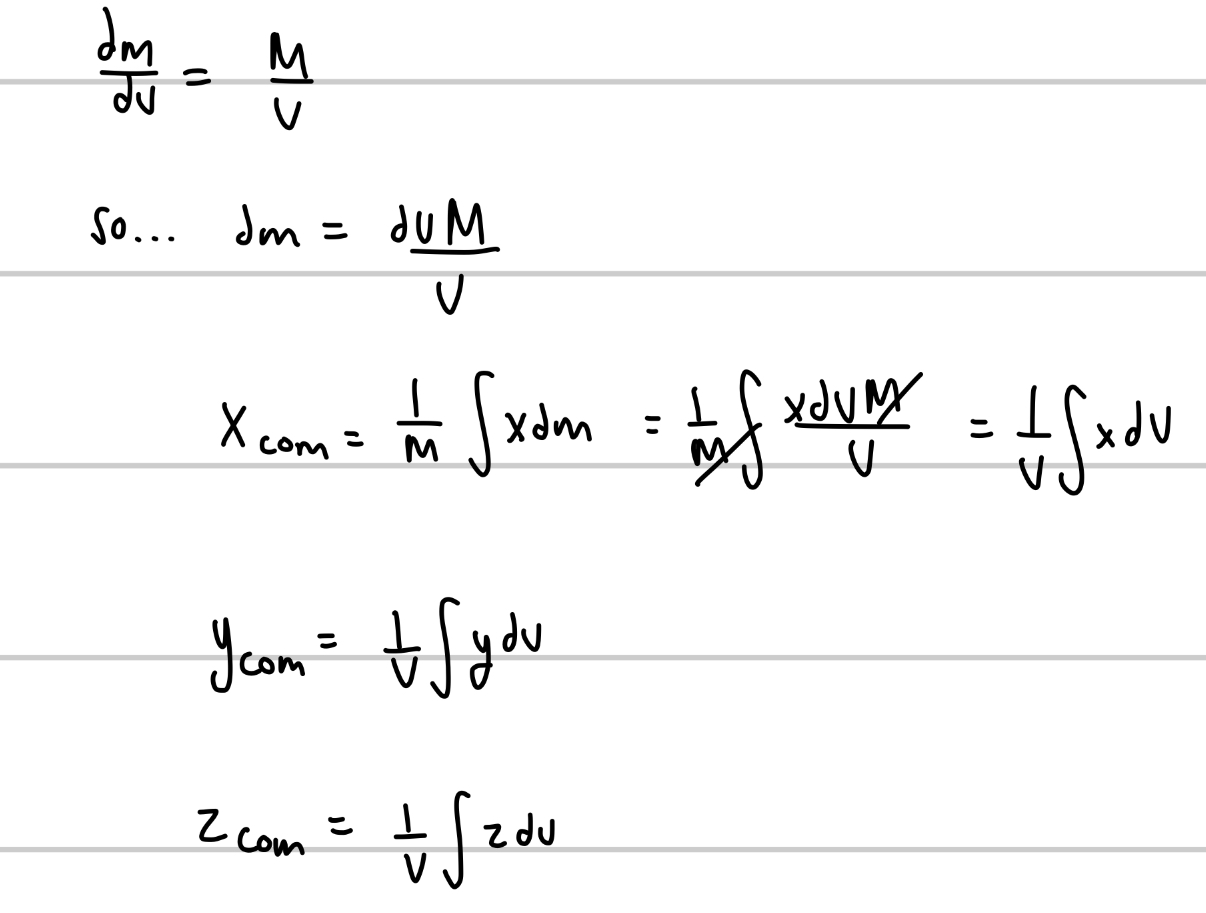 dm/dv = M/V
so... dm = dvM/V
x com = 1/m ∫ x dm = 1/m ∫ xdvM/V = 1/V ∫ x dV
y com = 1/V ∫ y dv
z com = 1/V ∫ z dv